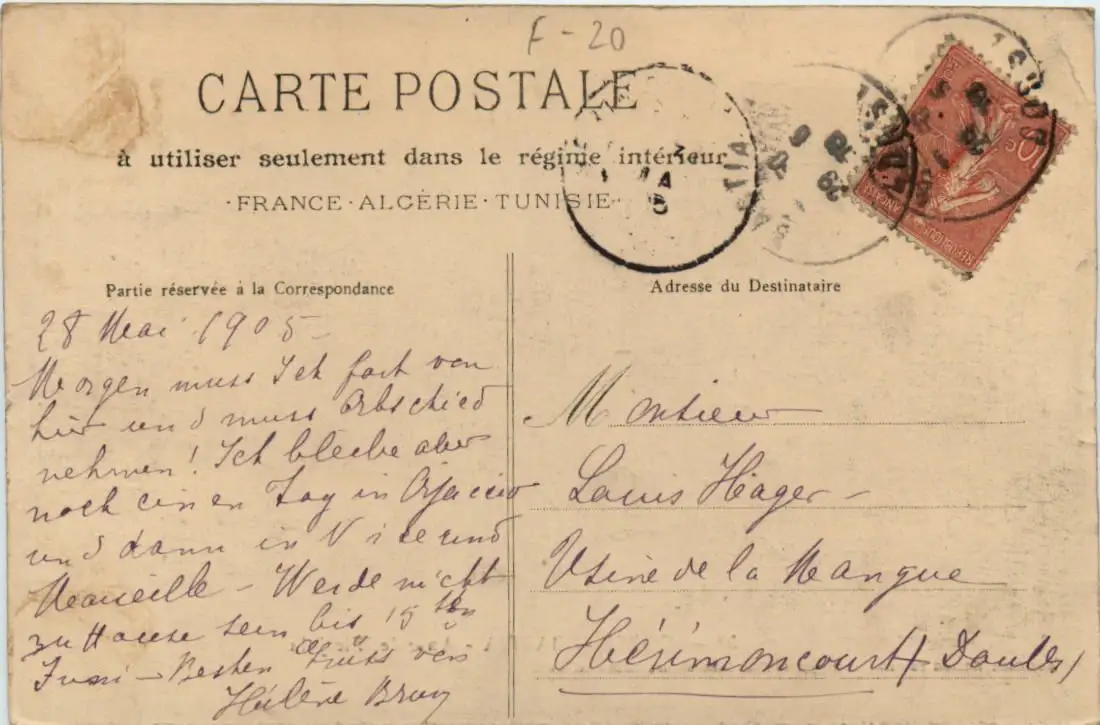 F-20
CARTE POSTALE
à utiliser seulement dans le régime intérieur
·FRANCE·ALGÉRIE·TUNISIE·
Partie réservée à la Correspondance
28 Mai 1905
Morgen muss Ich fort von
hier und muss Abschied
nehmen! Ich bleibe aber
noch einen Tag in Ajaccio
und dann in Nice und
Marseille - Werde nicht
zu Hause sein bis 15ten
Juni - Besten Grüss von
Hélène
Adresse du Destinataire
Monsieur
Louis Hager -
Usine de la
Hérimoncourt (Doubs)